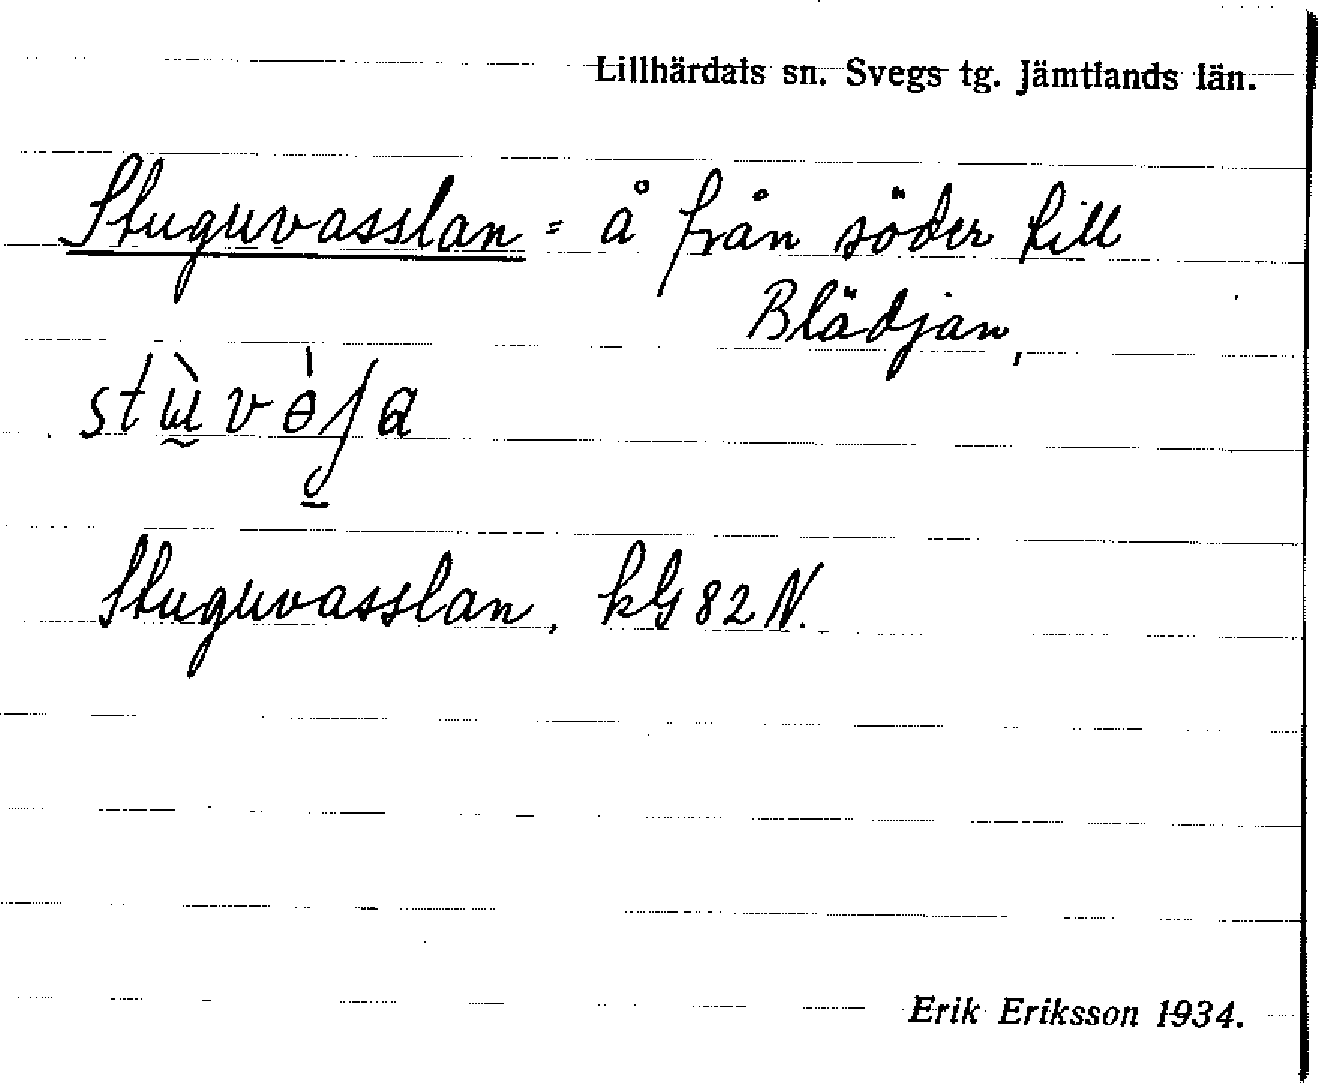 Lillhärdals sn. Svegs tg. Jämtlands län.
Stuguvasslan = å från söder till
Blädjan,
Stuguvasslan, kG 82 N.
Erik Eriksson 1934.